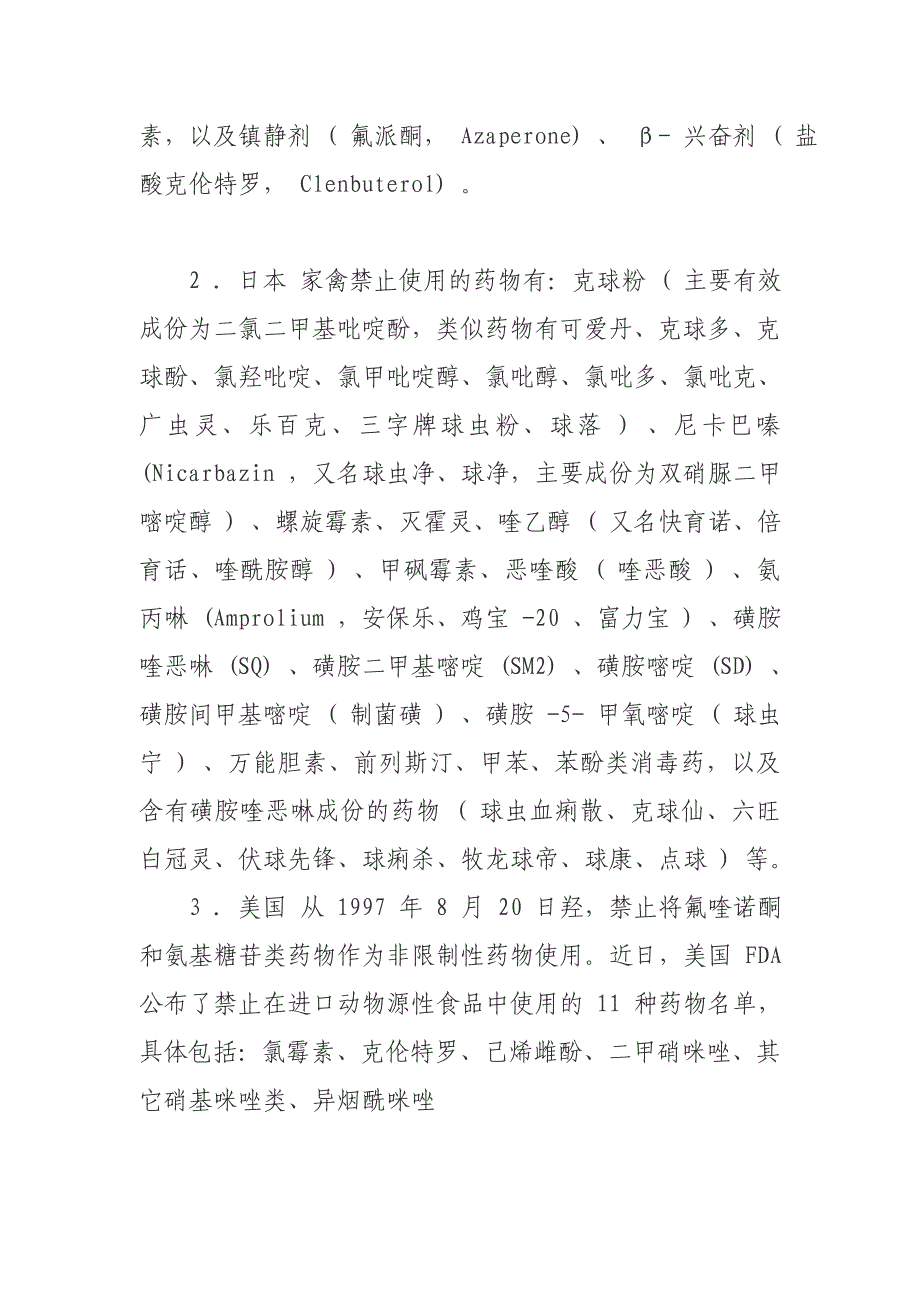 素，以及镇静剂 ( 氟派酮， Azaperone) 、 β- 兴奋剂 ( 盐
酸克伦特罗， Clenbuterol) 。
2 . 日本 家禽禁止使用的药物有: 克球粉 ( 主要有效
成份为二氯二甲基吡啶酚，类似药物有可爱丹、克球多、克
球酚、氯羟吡啶、氯甲吡啶醇、氯吡醇、氯吡多、氯吡克、
广虫灵、乐百克、三字牌球虫粉、球落 ) 、尼卡巴嗪
(Nicarbazin ，又名球虫净、球净，主要成份为双硝脲二甲
嘧啶醇 ) 、螺旋霉素、灭霍灵、喹乙醇 ( 又名快育诺、倍
育话、喹酰胺醇 ) 、甲砜霉素、恶喹酸 ( 喹恶酸 ) 、氨
丙啉 (Amprolium ，安保乐、鸡宝 -20 、富力宝 ) 、磺胺
喹恶啉 (SQ) 、磺胺二甲基嘧啶 (SM2) 、磺胺嘧啶 (SD) 、
磺胺间甲基嘧啶 ( 制菌磺 ) 、磺胺 -5- 甲氧嘧啶 ( 球虫
宁 ) 、万能胆素、前列斯汀、甲苯、苯酚类消毒药，以及
含有磺胺喹恶啉成份的药物 ( 球虫血痢散、克球仙、六旺
白冠灵、伏球先锋、球痢杀、牧龙球帝、球康、点球 ) 等。
3 . 美国 从 1997 年 8 月 20 日羟，禁止将氟喹诺酮
和氨基糖苷类药物作为非限制性药物使用。近日，美国 FDA
公布了禁止在进口动物源性食品中使用的 11 种药物名单，
具体包括: 氯霉素、克伦特罗、己烯雌酚、二甲硝咪唑、其
它硝基咪唑类、异烟酰咪唑